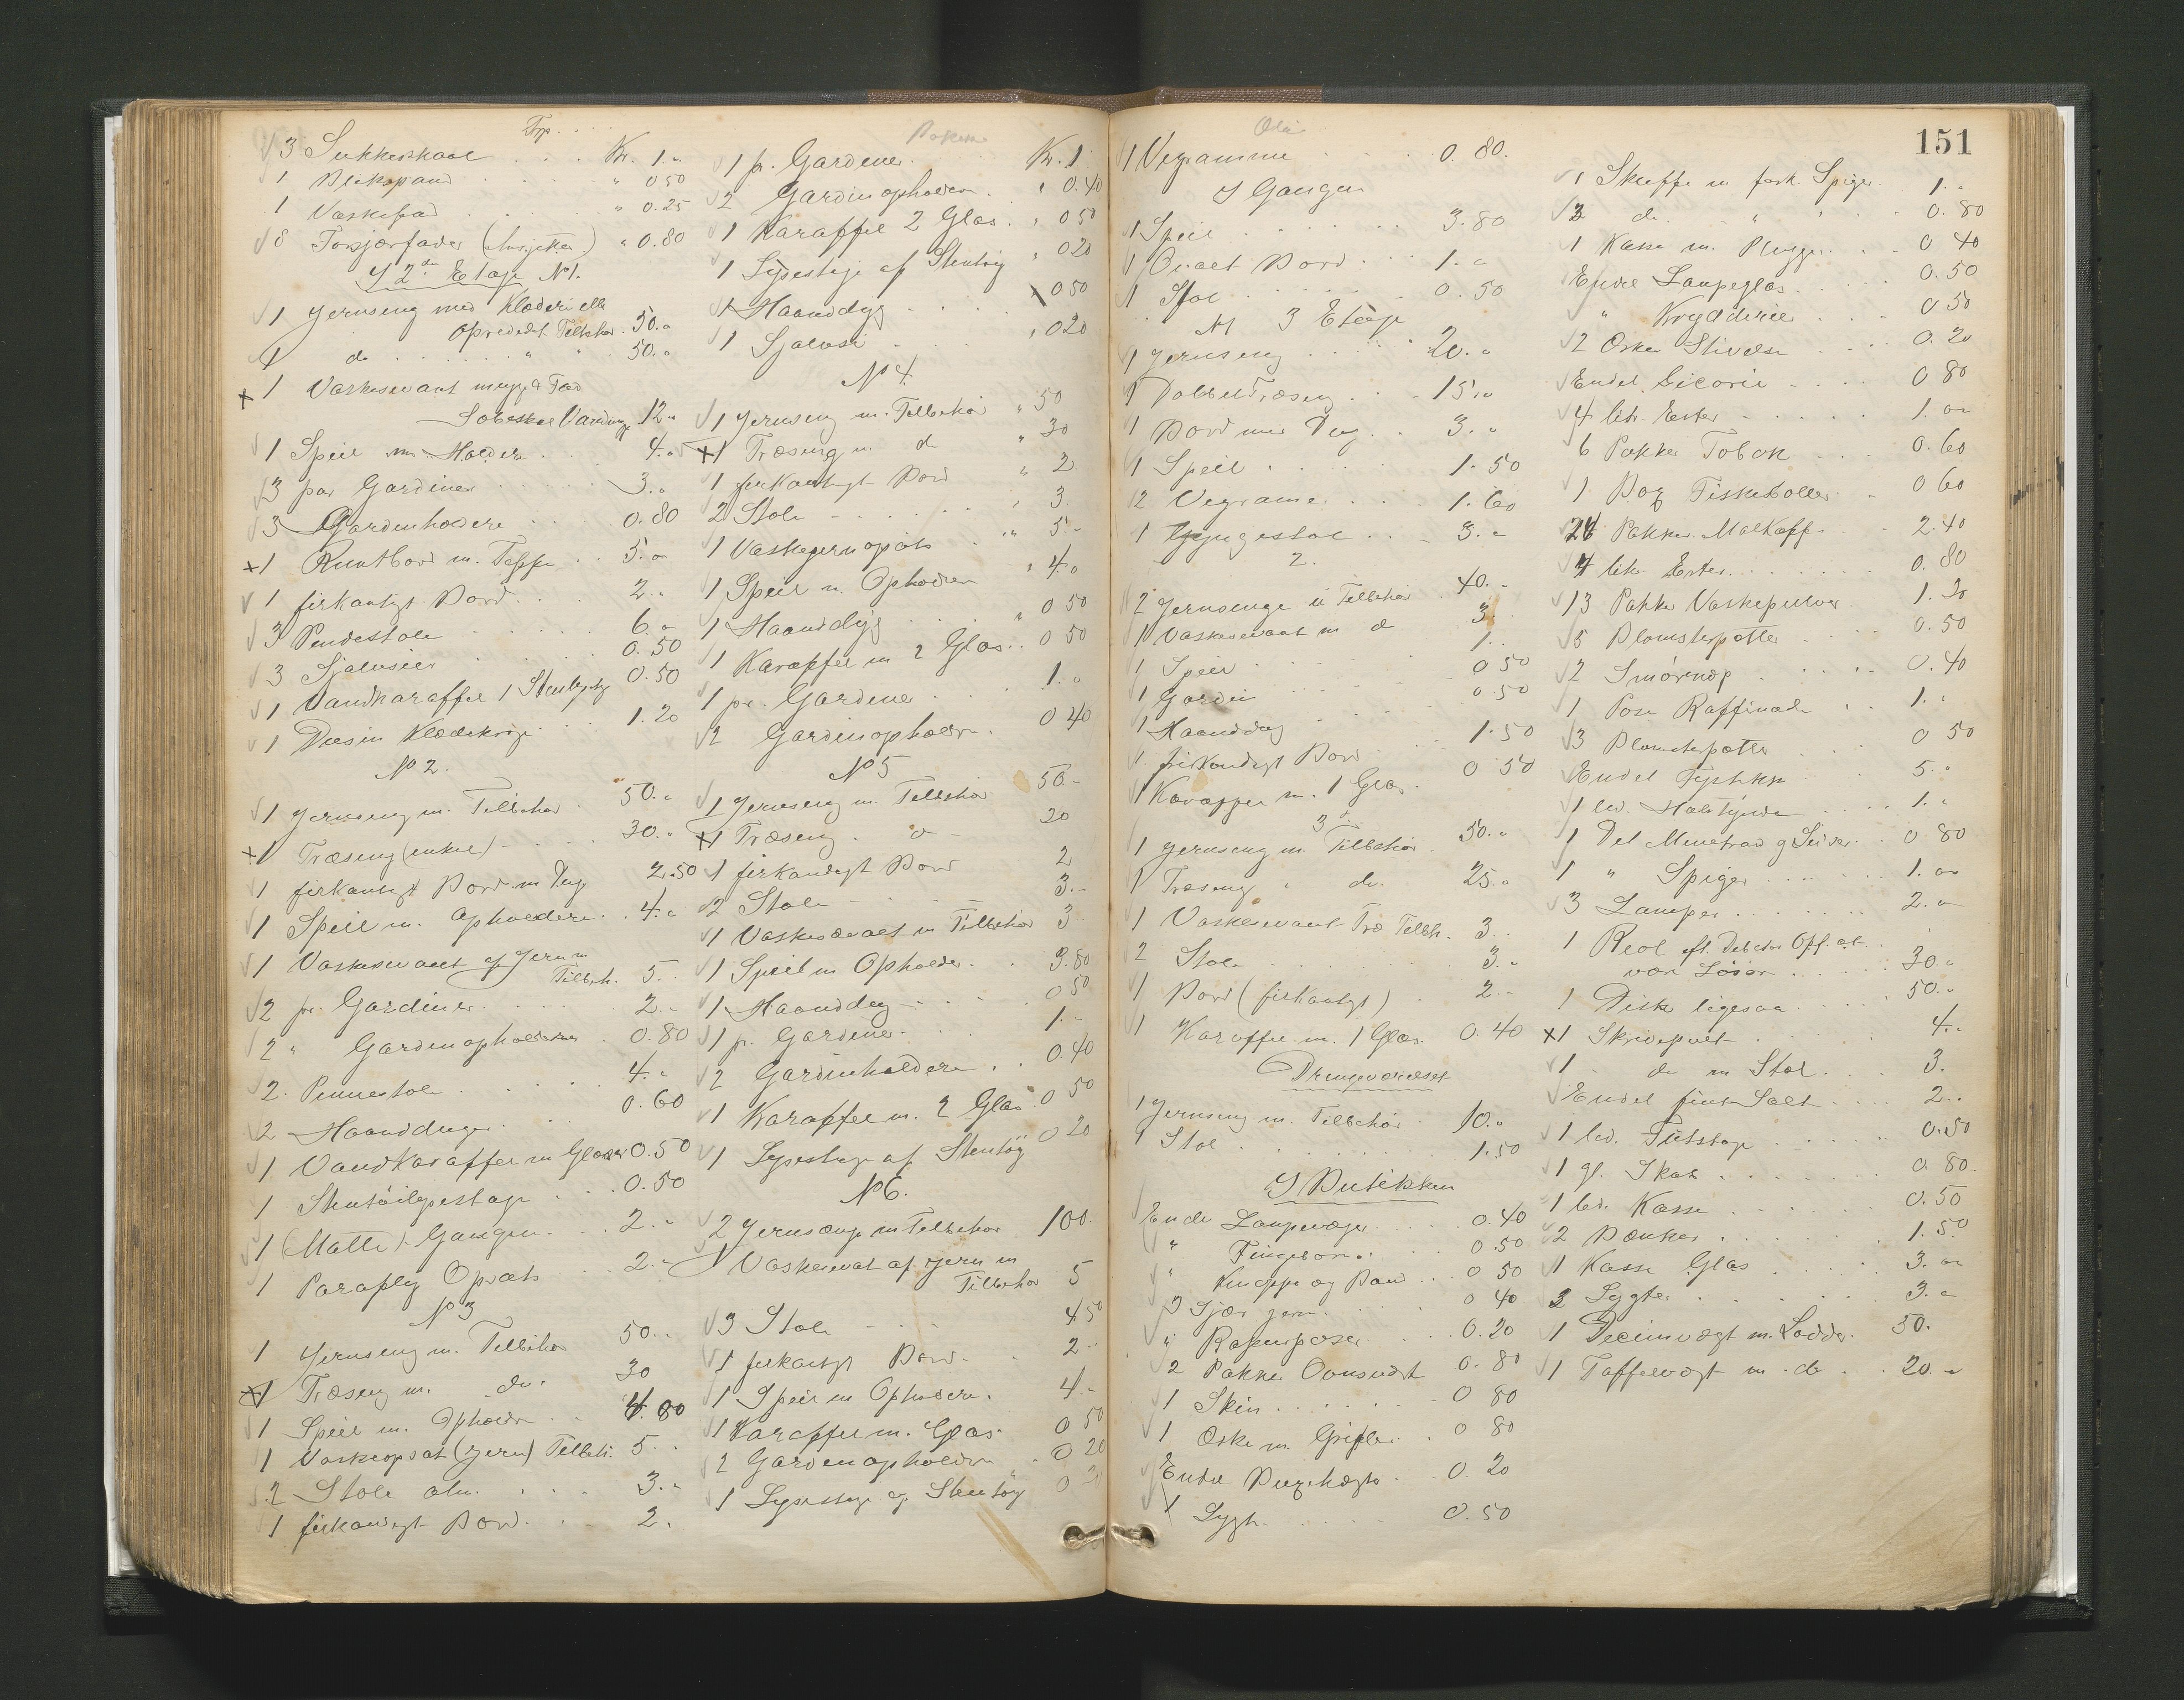 Trp.
3 Sukkerskaal . . . Kr. 1.-
1 Blikspand . . . " 0 50
1 Vaskefad . . . " 0.25
8 " 0.80
I 2den Etage No 1.
1 Jernseng med Klæder
opredt Tilbehør . 50.-
1 do . . . . " " 50.-
x 1 Vaskeservant mugge Fad
12.-
1 Speil m. Holdere . . 4.-
3 par Gardiner . . . 3.-
3 Gardenholdere . . 0.80
x1 Runtbord m. Teppe . . 5.-
1 firkantigt Bord . . . 2.-
3 Pindestole . . . 6.-
3 Sjalusier . . . 0.50
1 Vandkaraffel 1 0.50
1 Dusin Klædekroge . . . 1.20
No 2.
1 Jernseng m. Tilbehør . 50.-
x1 Træseng (enkel) . . . 30.-
1 firkantigt Bord m Dug 2.50
1 Speil m. Opholdere . . 4.-
1 Vaskeservant af Jern m
Tilbeh. 5 . .
2 pr. Gardiner . . . 2.-
2 " Gardinopholdere . 0.80
2 Pinnestole . . . 4.-
2 Haandduger . . . 0.60
1 Vandkaraffel m Glasser 0.50
1 Stentøilysestage . . . 0.50
1 Matte i Gangen . . 2.-
1 Paraply Opsats . . 2.-
No 3
1 Jernseng m. Tilbehør 50. .
x1 Træseng m. do. 30
1 Speil m. Opholdere . . 4.80
1 Vaskeopsat (Jern) Tilbeh. 5 . .
2 Stole alm. . . . 3.-
1 firkantigt Bord . . 2.
1 pr. Gardiner . Kr. 1
2 Gardinopholdere . " 0.40
1 Karaffel 2 Glas . " 0 50
1 Lysestage af Stentøy " 0 20
1 Haanddug . . . 0 50
1 Sjalusi . . . " 0 20
No 4
1 Jernseng m. Tilbehør " 50
x1 Træseng m d " 30
1 firkantigt Bord " 2
2 Stole - . . . " 3.
1 Vaskejernopsats . . " 5.-
1 Speil m. Opholdere " 4.-
1 Haanddug . . . " 0 50
1 Karaffel m 2 Glas . . 0 50
1 pr. Gardiner . . . 1.-
2 Gardinopholdere . 0 40
No 5
1 Jernseng m. Tilbehør 50.-
x1 Træseng . d - 20
1 firkandtigt Bord 2
2 Stole - . . . 3.-
1 Vaskeservant m Tilbehør 3
1 Speil m Opholder . . 3.80
1 Haanddug . . . 0 50
1 pr. Gardiner . . . 1.-
2 Gardinholdere . . 0.40
1 Karaffel m. 2 Glas . 0 50
1 Lysestage af Stentøy 0 20
No 6.
2 Jernsenge m Tilbehør 100.
1 Vaskeservat af Jern m
Tilbehør 5
3 Stole - . . . 4 50
1 firkantigt Bord . . 2 -
1 Speil m Opholdere . 4.-
1 Karaffel m. Glas . 0 50
2 Gardinopholdere . 0 20
1 Lysestage af Stentøy 0 20
151
1 Vegramme . . . 0. 80.
I Gangen
1 Speil . . . . 3.80
1 Ovalt Bord . . . 1.-
1 Stol . . . 0.50
3 Etage
1 Jernseng . . . 20.-
1 Dobbeltræseng . . . 15.-
1 Bord med Dug . . 3.-
1 Speil . . . 1.50
2 Vegramer . . . 1.60
1 Gyngestol . . . 3.-
2.
2 Jernsenge m Tilbehør . 40.-
1 Vaskeservant m d 3.
1 Speil . . . 1 . .
1 Gardin . . . 0 50
1 Haanddug . . . 0 50
1 firkandtigt Bord . . 1.50
1 Karaffel m. 1 Glas . 0 50
3.
1 Jernseng m. Tilbehør . 50.-
1 Træseng " do. 25.-
1 Vaskeservant Træ Tilbh. 3 . .
2 Stole . . . 3.-
1 Bord (firkantigt) . 2.-
1 Karaffel m. 1 Glas. 0.40
Drengeværelset
1 Jernseng m. Tilbehør . 10.-
1 Stol . . . 1.50
I Butikken
Endel Lampevæger . . . 0.40
" Fingerbor . . . 0.50
" Knappe og Baand . . 0 50
0 40
" . . . 0.20
2 Pakker Ovnsvert 0.80
1 Skin . . . . 0 80
1 Æske m. Grifler . . 0 80
Endel 0. 20
1 Lygte . . . 0.50
1 Skuffe m forsk. Spiger . 1.-
2 do . . " . 0.80
1 Kasse m. Plugger . . 0 40
Endel Lampeglas . . . 0.50
" Krydderier . . . 0 50
2 Æsker Stivelse . . . 0.20
Endel Sicorie . . . 0 80
4 litr. Erter . . . 1.-
6 Pakker Tobak . . . 0.60
1 Box Fiskeboller . . 0 60
24 Pakker Maltkaffe . . 2.40
4 litr. Erter . . . . 0.80
13 Pakke Vaskepulver . . 1.30
5 Blomsterpotter . . . 0.50
2 Smørnap . . . 0.40
1 Pose Raffinade . . 1.-
3 Blomsterpotter . . . 0 50
Endel . . . 5.-
1 led. Halvtynde . . . 1.-
1 Del . 0 80
1 " Spiger . . . 1.-
3 Lamper . . . 2.-
1 Reol efl. Debitors Opf. at
være Løsøre . . . 30.-
1 Disk ligesaa . . . 50.-
x1 Skrivepult . . . 4.-
1 do m Stol . . . 3.
Endel fint Salt . . . 2 . .
1 led. . . . 0.50
1 gl. Skab . . . 0.80.
1 led. Kasse . . . 0.50
2 Bænker . . . 1.50
1 Kasse Glas . . . 3.-
3 Lygter . . . 3.-
1 Decimvægt m. Lodder . 50.
1 Taffelvægt m do . . 20.-